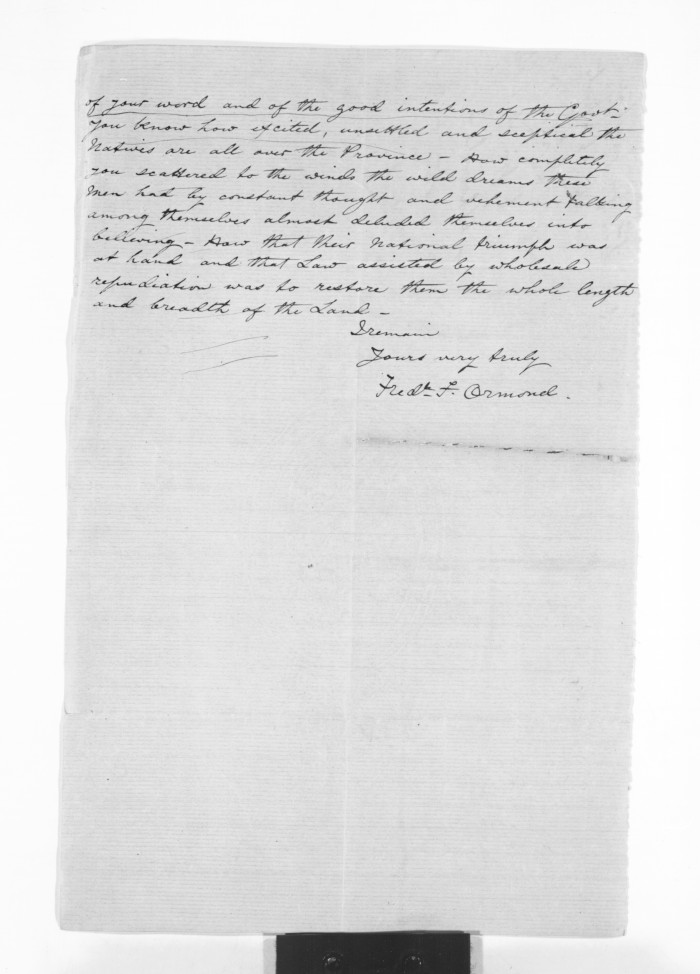 of your word and of the good intentions of the Govt.
You know how excited, unsettled and sceptical the
Natives are all over the Province - How completely
you scattered to the winds the wild dreams these
Men had by constant thought and vehement talking
among themselves almost deluded themselves into
believing - How that their National triumph was
at hand and that Law assisted by wholesale
repudiation was to restore them the whole length
and breadth of the Land -
I remain
Yours very truly
Fredk. F. Ormond.